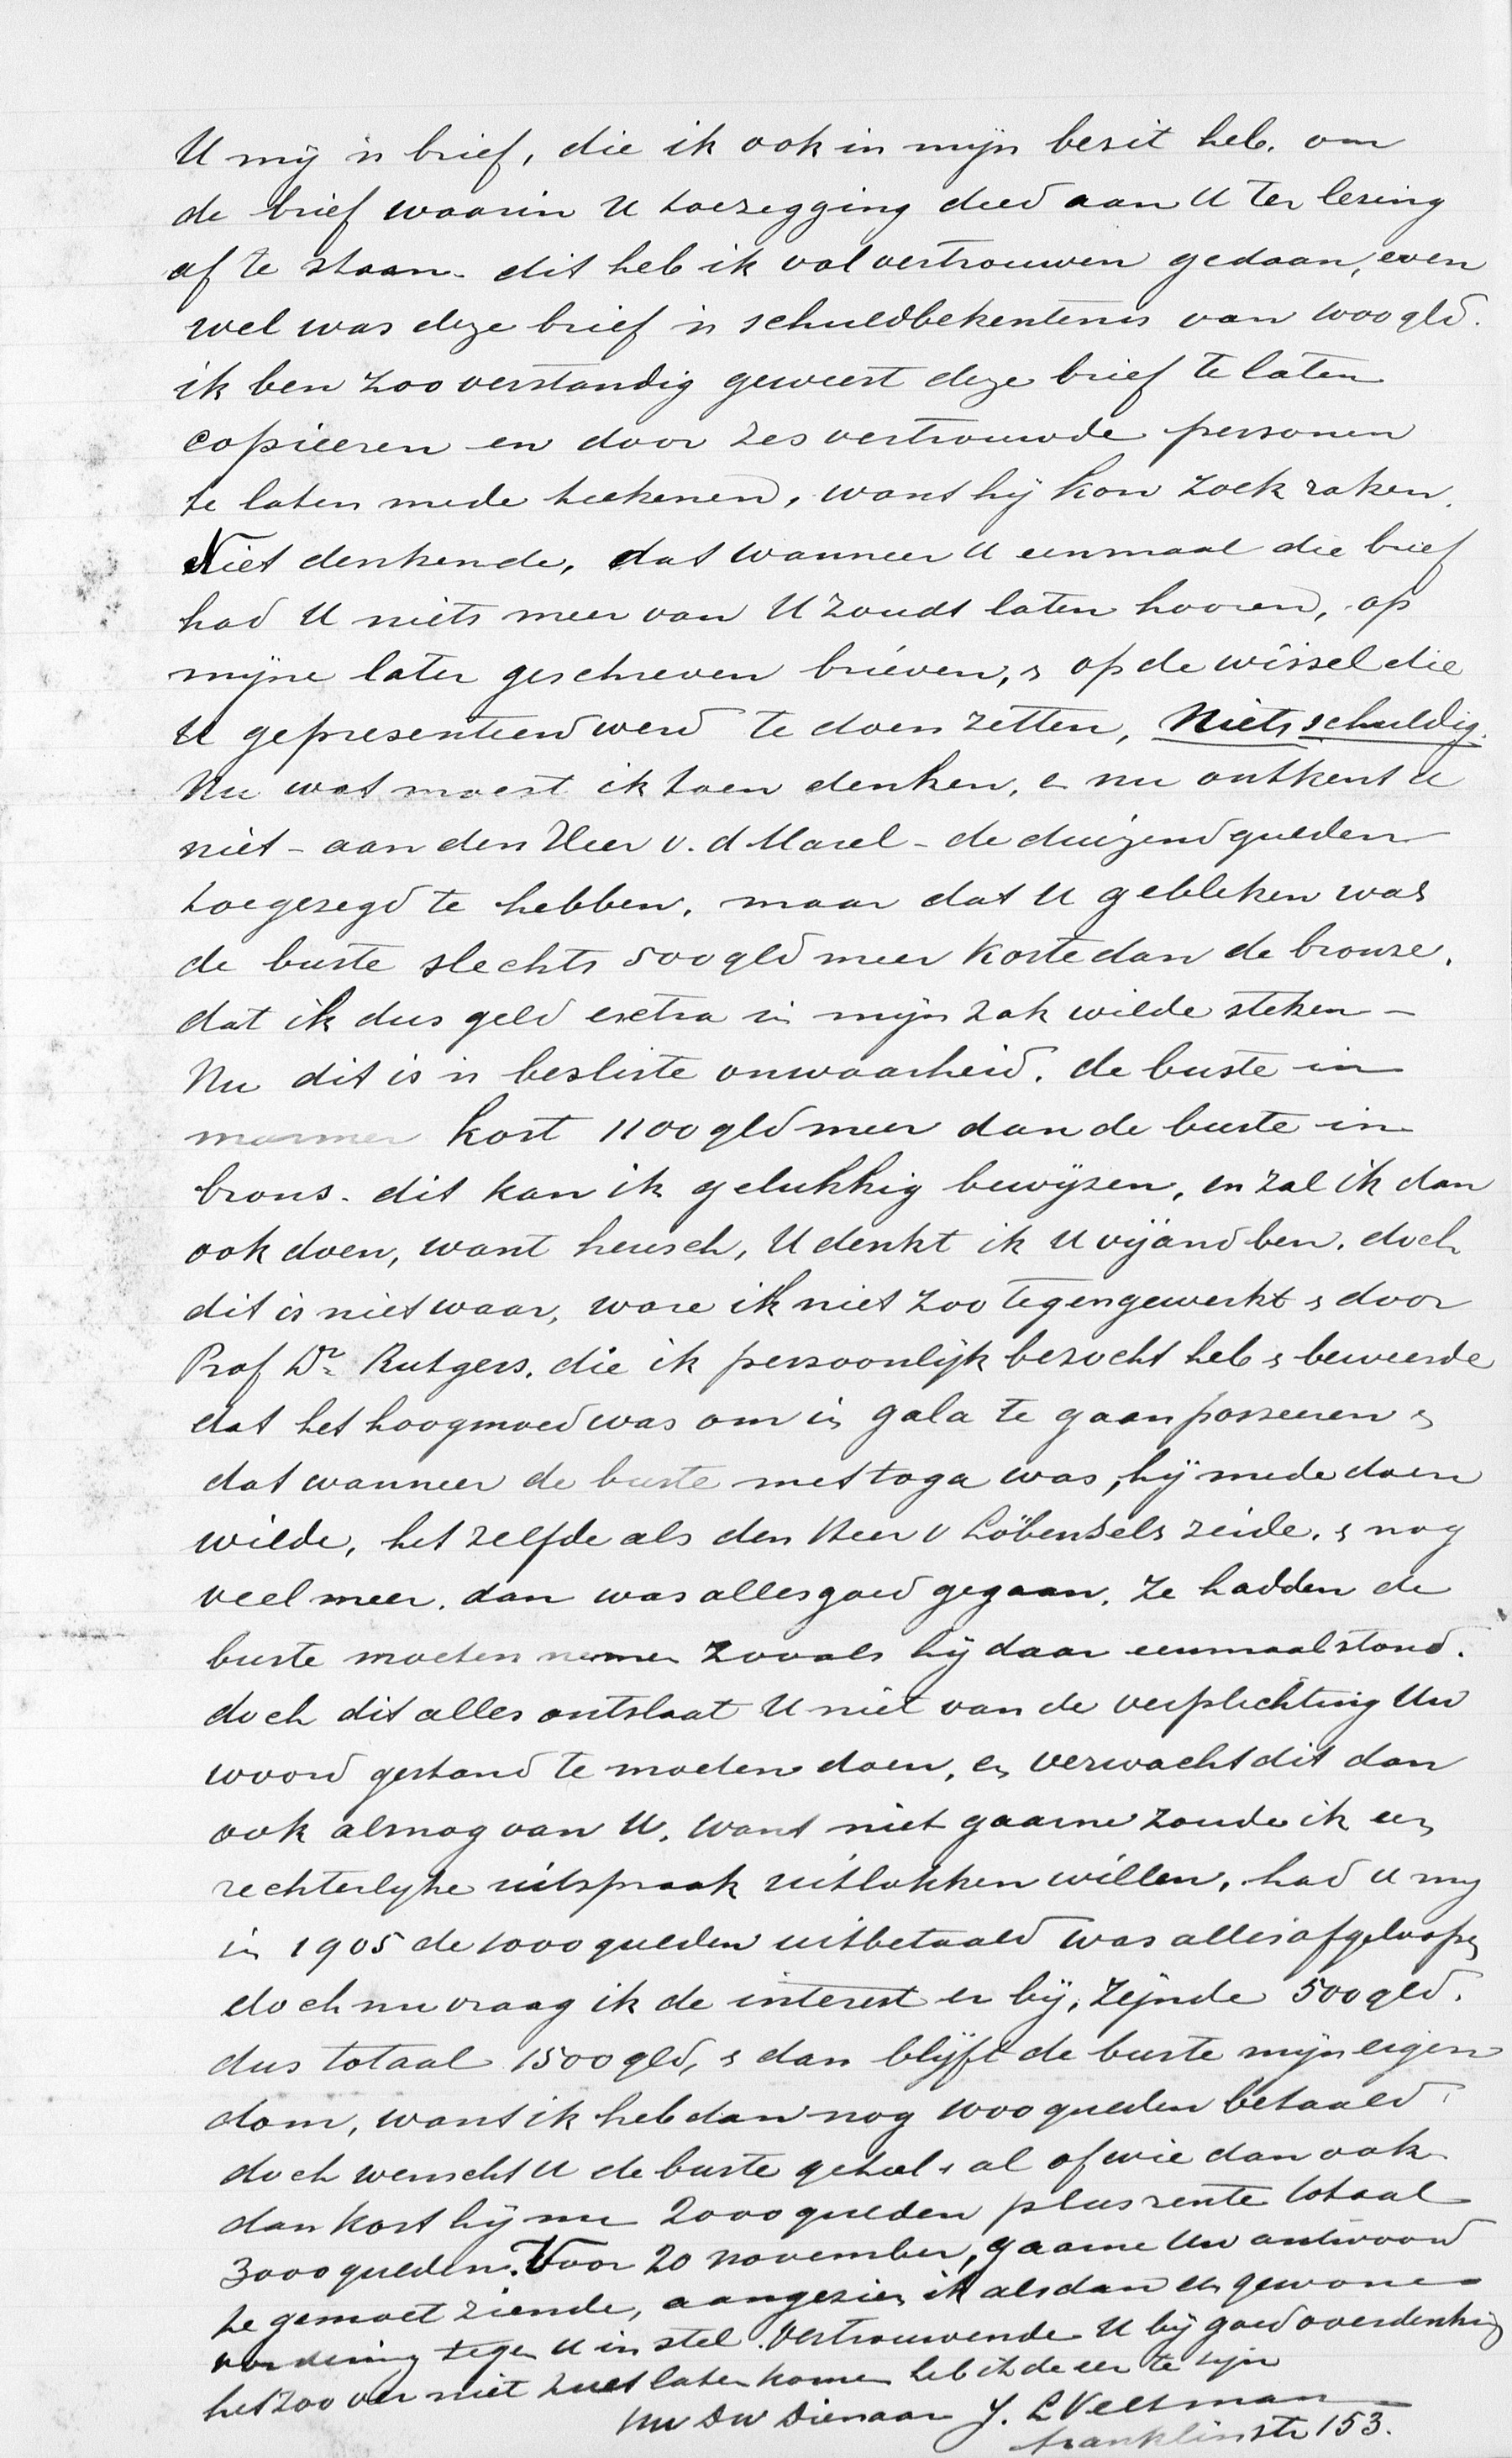 U mij 'n brief, die ik ook in mijn besit heb. om
de brief waarin U toezegging deed aan U ter lezing
af te staan. dit heb ik vol vertrouwen gedaan, even
wel was deze brief 'n schuldbekentenis van 1000 gld.
ik ben zoo verstandig geweest deze brief te laten
copieeren en door zes vertrouwde personen
te laten mede teekenen, want hij kon zoek raken.
Niet denkende, dat wanneer U eenmaal die brief
had U niets meer van U zoudt laten hooren, op
mijne later geschreven brieven, & op de wissel die
U gepresenteerd werd te doen zetten, Niets schuldig.
Nu wat moest ik toen denken, en nu ontkent U
niet - aan den Heer v. d Marel - de duizend gulden
toegezegd te hebben, maar dat U gebleken was
de buste slechts 500 gld meer koste dan de bronze.
dat ik dus geld extra in mijn zak wilde steken -
Nu dit is 'n besliste onwaarheid. de buste in
marmer kost 1100 gld meer dan de buste in
brons. dit kan ik gelukkig bewijzen, en zal ik dan
ook doen, want heusch, U denkt ik U vijand ben. doch
dit is niet waar, ware ik niet zoo tegengewerkt & door
Prof Dr. Rutgers. die ik persoonlijk bezocht heb & beweerde
dat het hoogmoed was om in gala te gaan posseeren &
dat wanneer de buste met toga was, hij mede doen
wilde, het zelfde als den Heer v Löbensels zeide. & nog
veel meer. dan was alles goed gegaan. Ze hadden de
buste moeten nemen zooals hij daar eenmaal stond.
doch dit alles ontslaat U niet van de verplichting Uw
woord gestand te moeten doen, en verwacht dit dan
ook alsnog van U. want niet gaarne zoude ik een
rechterlijke uitspraak uitlokken willen, had U mij
in 1905 de 1000 gulden uitbetaald was alles afgeloopen
doch nu vraag ik de interest er bij, zijnde 500 gld.
dus totaal 1500 gld, & dan blijft de buste mijn eigen
dom, want ik heb dan nog 1000 gulden betaald.
doch wenscht U de buste geheel & al of wie dan ook
dan kost hij nu 2000 gulden plus rente totaal
3000 gulden. Voor 20 november, gaarne Uw antwoord
te gemoet ziende, aangezien ik alsdan een gewone
vordering tegen U in stel. Vertrouwende U bij goed overdenking
het zoo ver niet zult laten komen heb ik de eer te zijn
Uw Dw Dienaar J. L Veltman
Franklinstr 153.